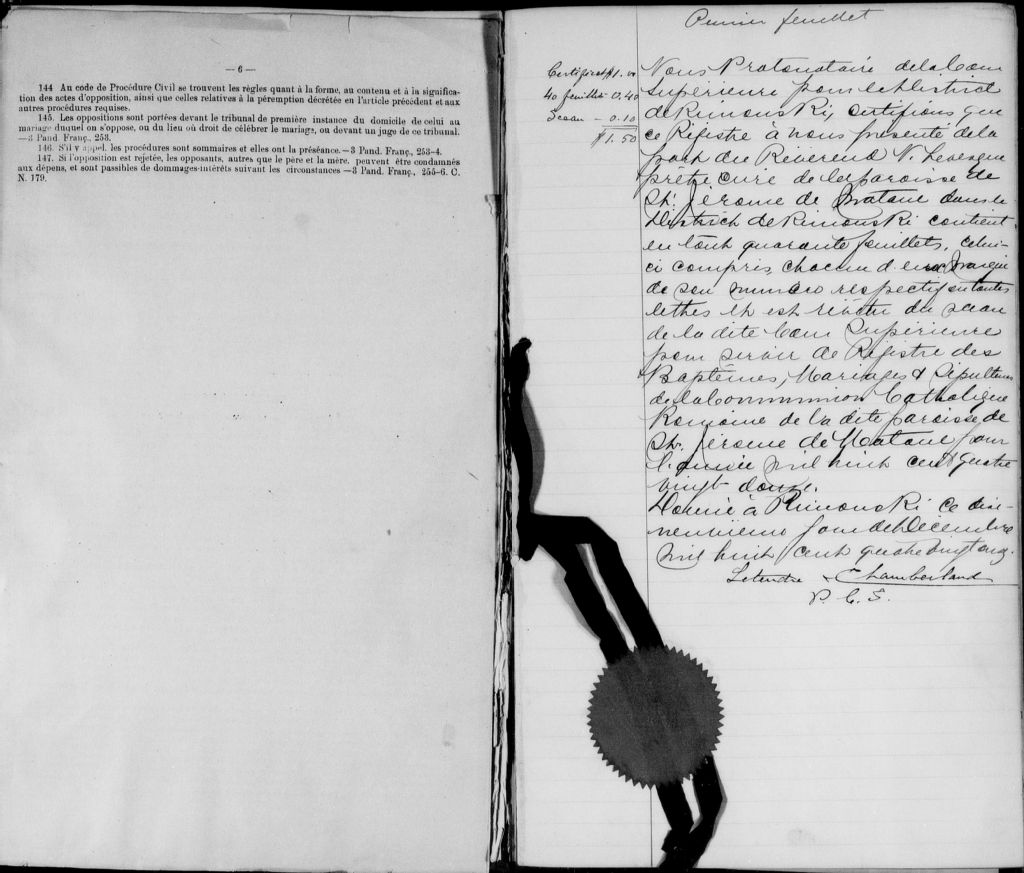 — 6 —
144 Au code de Procédure Civil se trouvent les règles quant à la forme, au contenu et à la significa-
tion des actes d'opposition, ainsi que celles relatives à la péremption décrétée en l'article précédent et aux
autres procédures requises.
145. Les oppositions sont portées devant le tribunal de première instance du domicile de celui au
mariage duquel on s'oppose, ou du lieu où droit de célébrer le mariage, ou devant un juge de ce tribunal.
—3 Pand. Franç., 253.
146. S'il y appel, les procédures sont sommaires et elles ont la préséance.—3 Pand. Franç., 253-4.
147. Si l'opposition est rejetée, les opposants, autres que le père et la mère, peuvent être condamnés
aux dépens, et sont passibles de dommages-intérêts suivant les circonstances —3 Pand. Franç., 255-6. C.
N. 179.
Premier feuillet
Certificat $1.00
40 feuilles - 0.40
Sceau - 0.10
$1.50
Nous Protonotaire de la Cour
Supérieure pour le District
de Rimouski, certifions que
ce Régistre à nous présenté de la
part du Révérend N. Levesque
prêtre curé de la paroisse de
St. Jérome de Matane dans le
District de Rimouski contient
en tout quarante feuillets, celui-
ci compris chacun d'eux marqué
de son numéro respectif en toutes
lettres et est revêtu du sceau
de la dite Cour Supérieure
pour servir de Régistre des
Baptêmes, Mariages & Sépultures
de la Communion Catholique
Romaine de la dite paroisse de
St. Jérome de Matane pour
l'année mil huit cent quatre
vingt douze.
Donné à Rimouski ce dix-
neuvième jour de Décembre
mil huit cent quatre vingt onze.
Letendre & Chamberland
P. C. S.